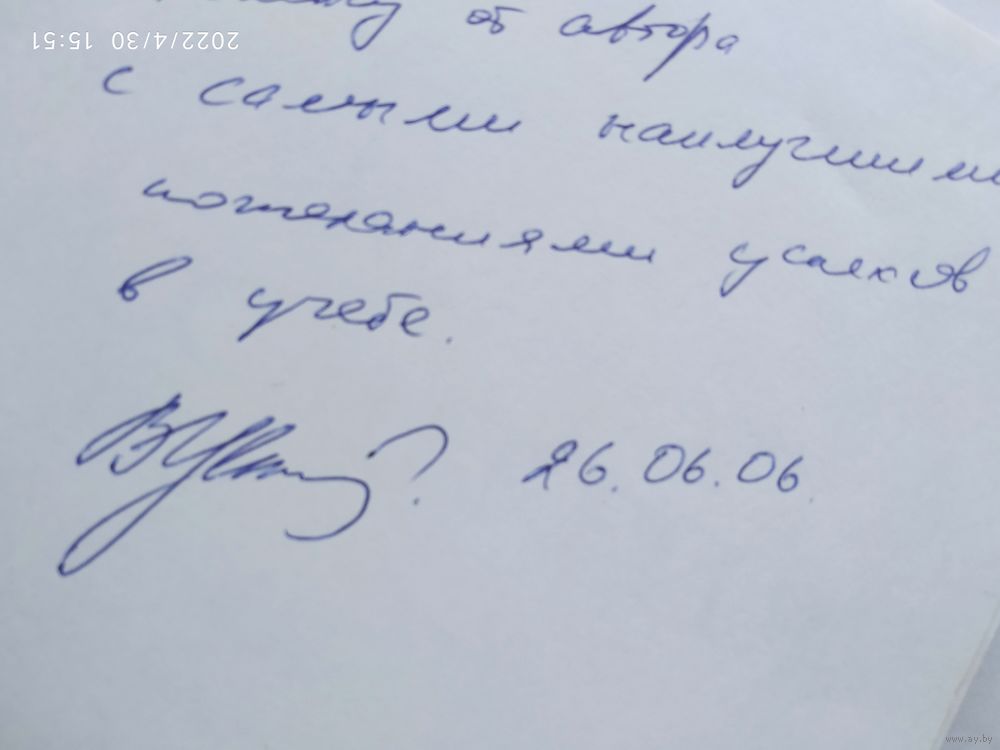 от автора
с самыми наилучшими
пожеланиями успехов
в учебе.
26.06.06.
2022/4/30 15:51
www.ay.by